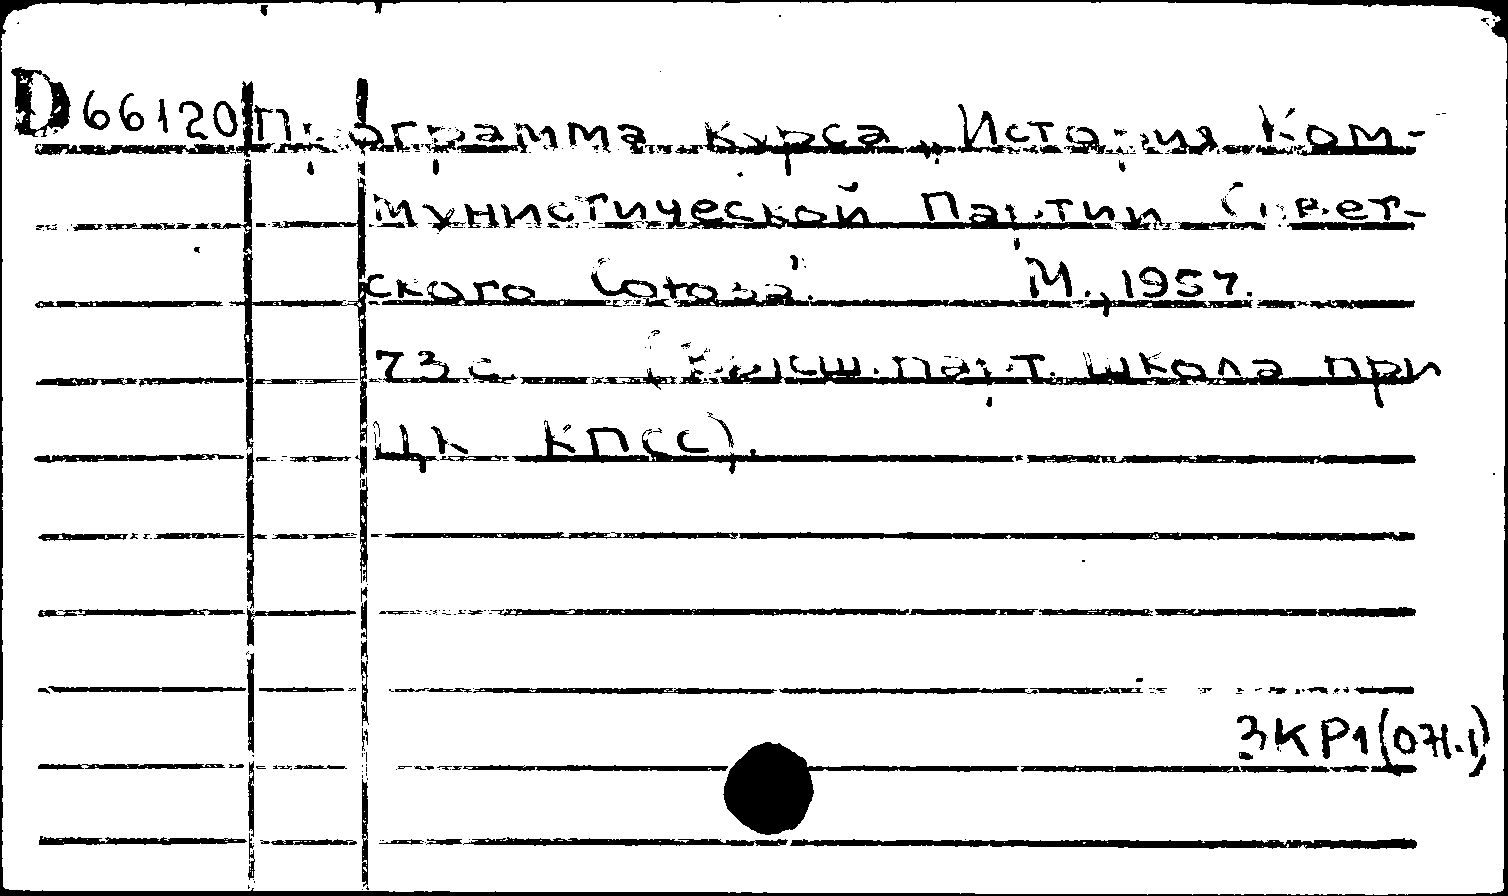 D66120 Программа курса „История Ком-
мунистической Партии Совет-
ского Союза". М., 1957.
73 с. (Высш. парт. школа при
ЦК КПСС).
3КР1(071.1)